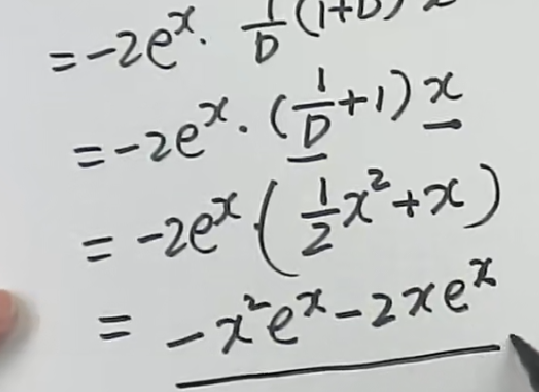 = -2eˣ · 1/D (1+D) x
= -2eˣ · (1/D + 1) x
= -2eˣ (1/2 x² + x)
= -x²eˣ - 2xeˣ